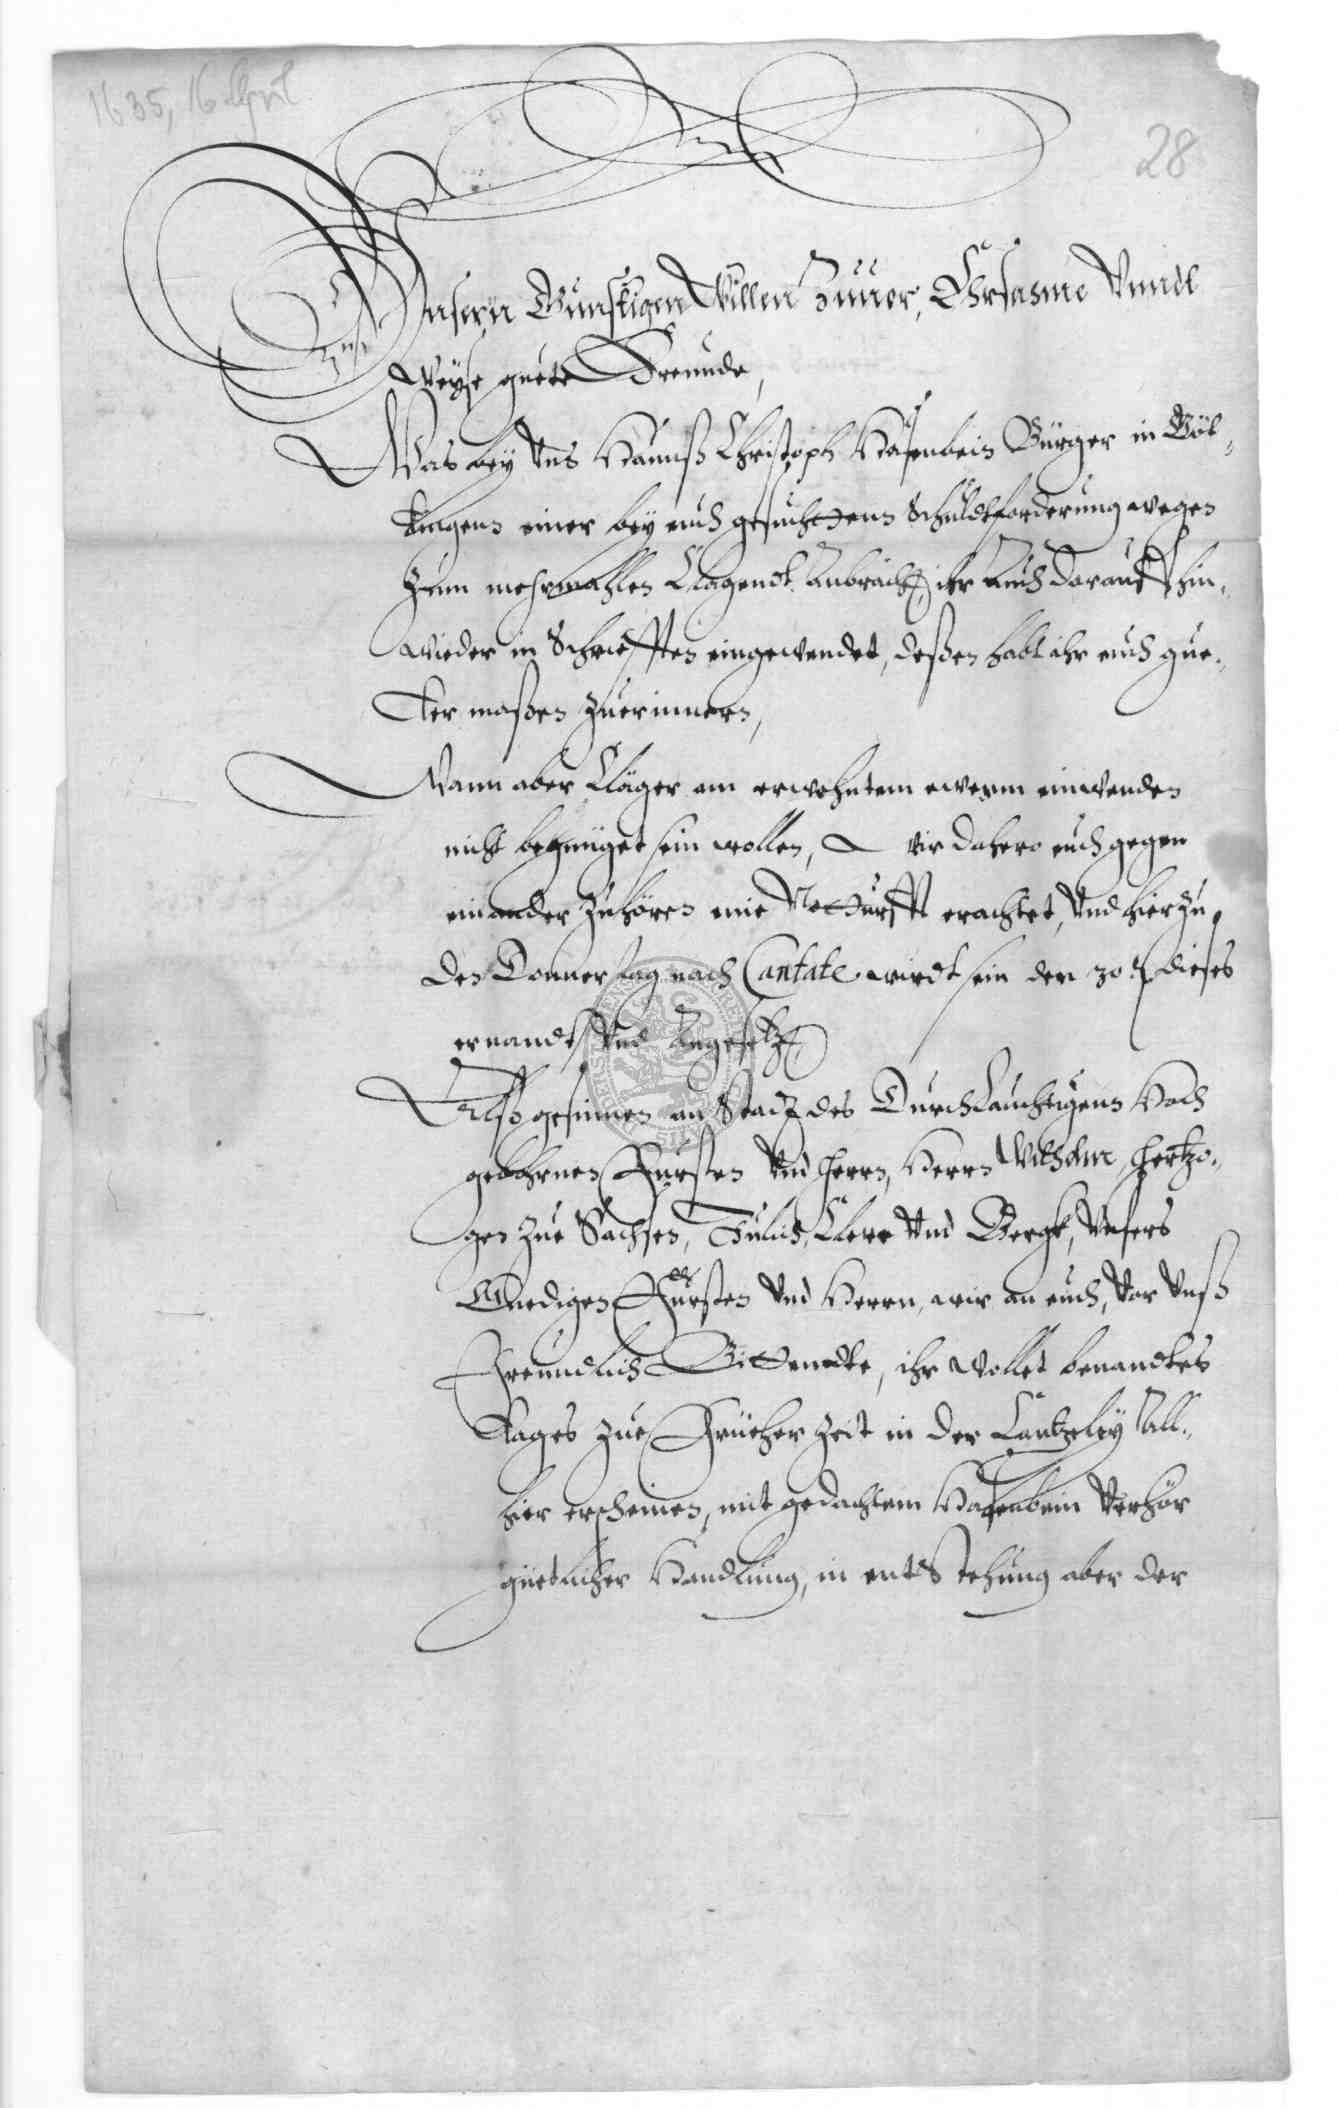 1635, 16 April
28
Unsern Günstigen Willen Zuuor, Ehrsame Unndt
Weyse guete Freunde,
Was bey Uns Hannß Christoph Hasenbein Bürger in
einer bey euch gesuchtenn Schuldtforderung wegen
Zum mehrmahlen Clagendt Anbracht, ihr Auch darauff hin-
wieder in Schriefften eingewendet, deßen habt ihr euch gue-
ter maßen Zuerinnern,
Wann aber Cläger am erwehntem ewerm einwenden
nicht begnüget sein wollen, wir dahero euch gegen
einander Zuhören eine Notturfft erachtet, Und hierzu
den Donnerstag nach Cantate wirdt sein der 30 dieses
ernandt Und Angesetzt
Alß gesinnen an Stadt des Durchlauchtigenn Hoch
gebohrnen Fürsten Und Herrn, Herrn Wilhelm Hertzo-
gen Zue Sachsen, Jülich, Cleve Und Bergk, Unsers
Gnedigen Fürsten Und Herrn, wir an euch, Vor Unß
Freundlich Bittendte, ihr wollet benandtes
tages Zue Früeher Zeit in der Cantzeley All-
hier erscheinen, mit gedachtem Hasenbein Verhör
güetlicher Handlung, in entstehung aber der